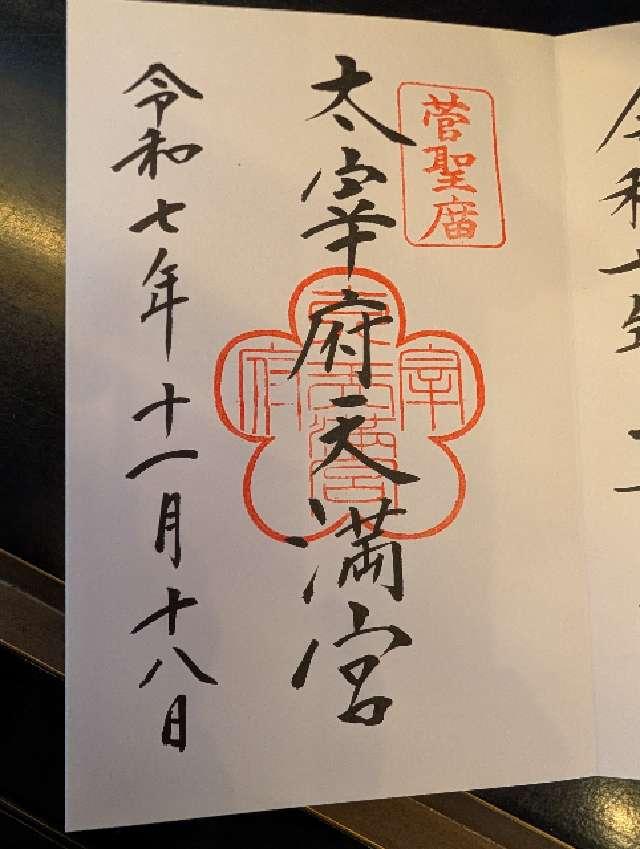 菅聖庿
太宰府天満宮
令和七年十一月十八日